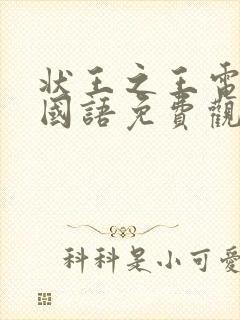 狀王之王電
國語免費觀
科科是小可愛